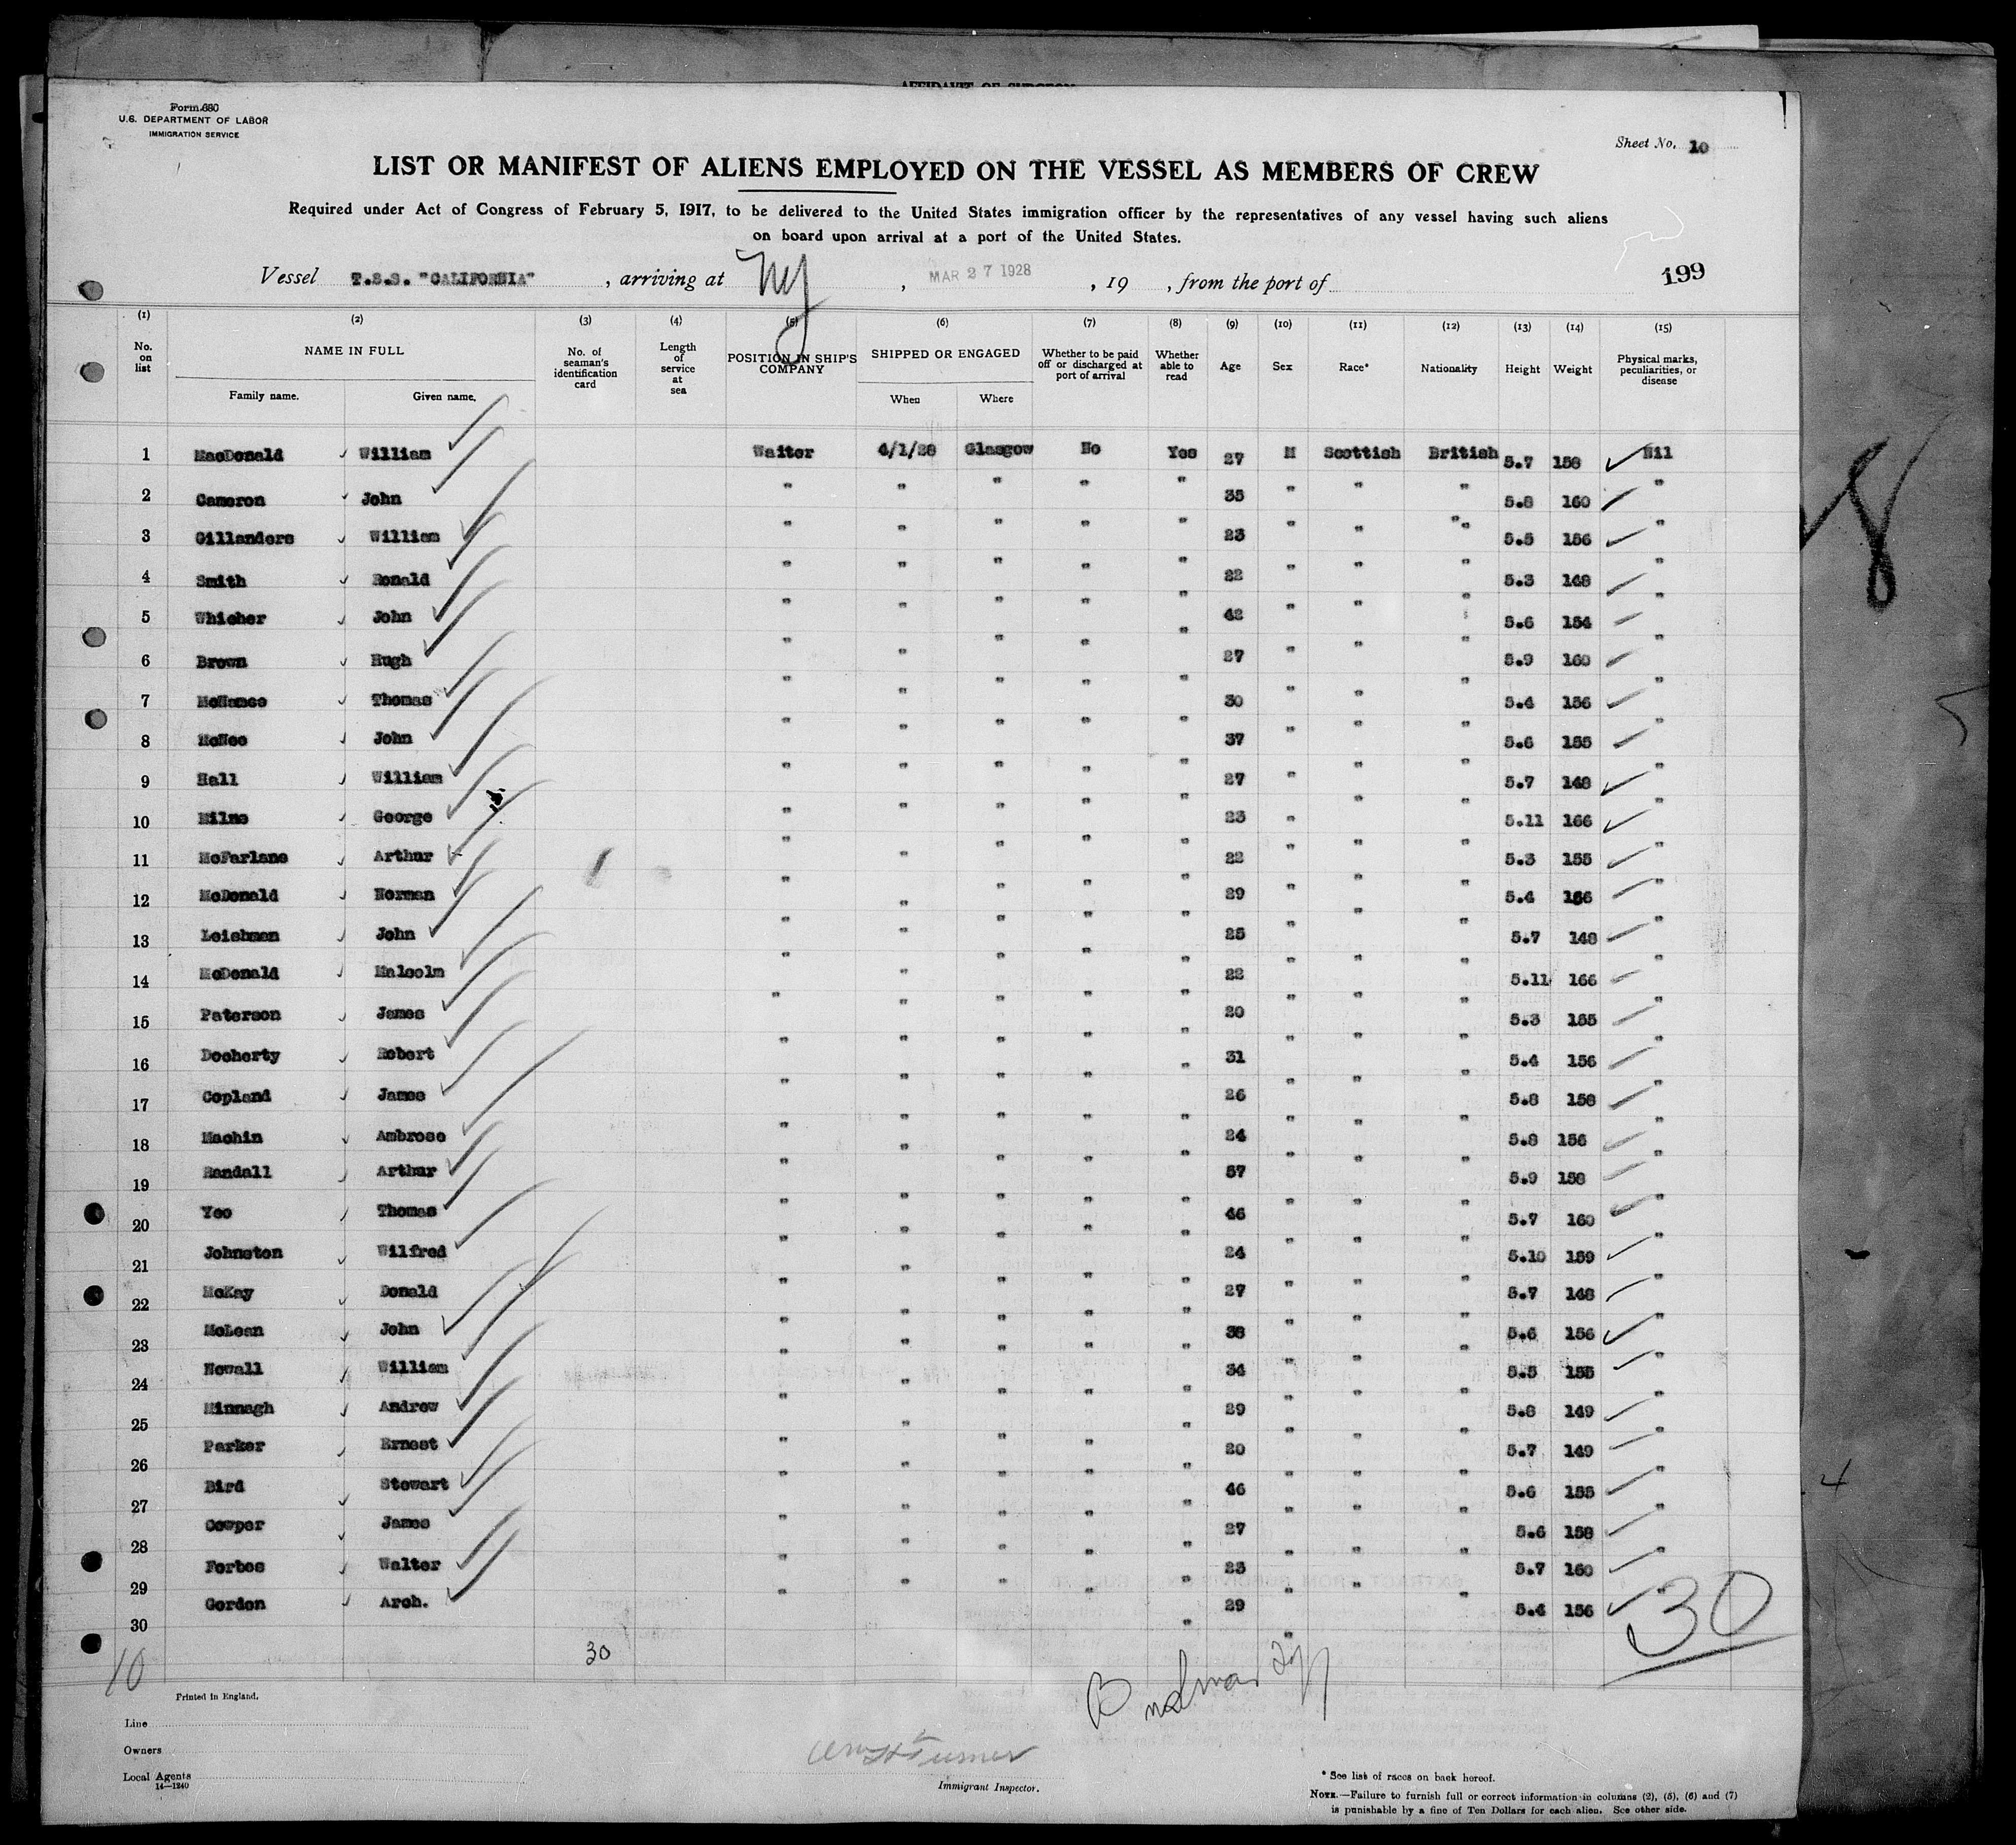 AFFIDAVIT OF SURGEON
Form 680
U.S. DEPARTMENT OF LABOR
IMMIGRATION SERVICE
Sheet No. 10
LIST OR MANIFEST OF ALIENS EMPLOYED ON THE VESSEL AS MEMBERS OF CREW
Required under Act of Congress of February 5, 1917, to be delivered to the United States immigration officer by the representatives of any vessel having such aliens
on board upon arrival at a port of the United States.
Vessel T.S.S. "CALIFORNIA" , arriving at NY , MAR 27 1928 , 19 , from the port of 199
(1) (2) (3) (4) (5) (6) (7) (8) (9) (10) (11) (12) (13) (14) (15)
No. on list NAME IN FULL Family name. Given name. No. of seaman's identification card Length of service at sea POSITION IN SHIP'S COMPANY SHIPPED OR ENGAGED When Where Whether to be paid off or discharged at port of arrival Whether able to read Age Sex Race* Nationality Height Weight Physical marks, peculiarities, or disease
1 MacDonald William Waiter 4/1/28 Glasgow No Yes 27 M Scottish British 5.7 158 Nil
2 Cameron John " " " " " 35 " " " 5.8 160 "
3 Gillanders William " " " " " 23 " " " 5.5 156 "
4 Smith Ronald " " " " " 22 " " " 5.3 148 "
5 Whicher John " " " " " 42 " " " 5.6 154 "
6 Brown Hugh " " " " " 27 " " " 5.9 160 "
7 McNamee Thomas " " " " " 30 " " " 5.4 156 "
8 McNee John " " " " " 37 " " " 5.6 155 "
9 Hall William " " " " " 27 " " " 5.7 148 "
10 Milne George " " " " " 23 " " " 5.11 166 "
11 McFarlane Arthur " " " " " 22 " " " 5.3 155 "
12 McDonald Norman " " " " " 29 " " " 5.4 156 "
13 Leishman John " " " " " 25 " " " 5.7 148 "
14 McDonald Malcolm " " " " " 22 " " " 5.11 166 "
15 Paterson James " " " " " 20 " " " 5.3 155 "
16 Docherty Robert " " " " " 31 " " " 5.4 156 "
17 Copland James " " " " " 26 " " " 5.8 158 "
18 Machin Ambrose " " " " " 24 " " " 5.8 156 "
19 Randall Arthur " " " " " 57 " " " 5.9 158 "
20 Yeo Thomas " " " " " 46 " " " 5.7 160 "
21 Johnston Wilfred " " " " " 24 " " " 5.10 159 "
22 McKay Donald " " " " " 27 " " " 5.7 148 "
23 McLean John " " " " " 38 " " " 5.6 156 "
24 Newall William " " " " " 34 " " " 5.5 155 "
25 Minnagh Andrew " " " " " 29 " " " 5.8 149 "
26 Parker Ernest " " " " " 20 " " " 5.7 149 "
27 Bird Stewart " " " " " 46 " " " 5.6 155 "
28 Cowper James " " " " " 27 " " " 5.6 158 "
29 Forbes Walter " " " " " 23 " " " 5.7 160 "
30 Gordon Arch. " " " " " 29 " " " 5.4 156 "
30
10 30
Printed in England.
Line
Owners
Local Agents
14—1240
Immigrant Inspector.
* See list of races on back hereof.
NOTE.—Failure to furnish full or correct information in columns (2), (5), (6) and (7)
is punishable by a fine of Ten Dollars for each alien. See other side.
4